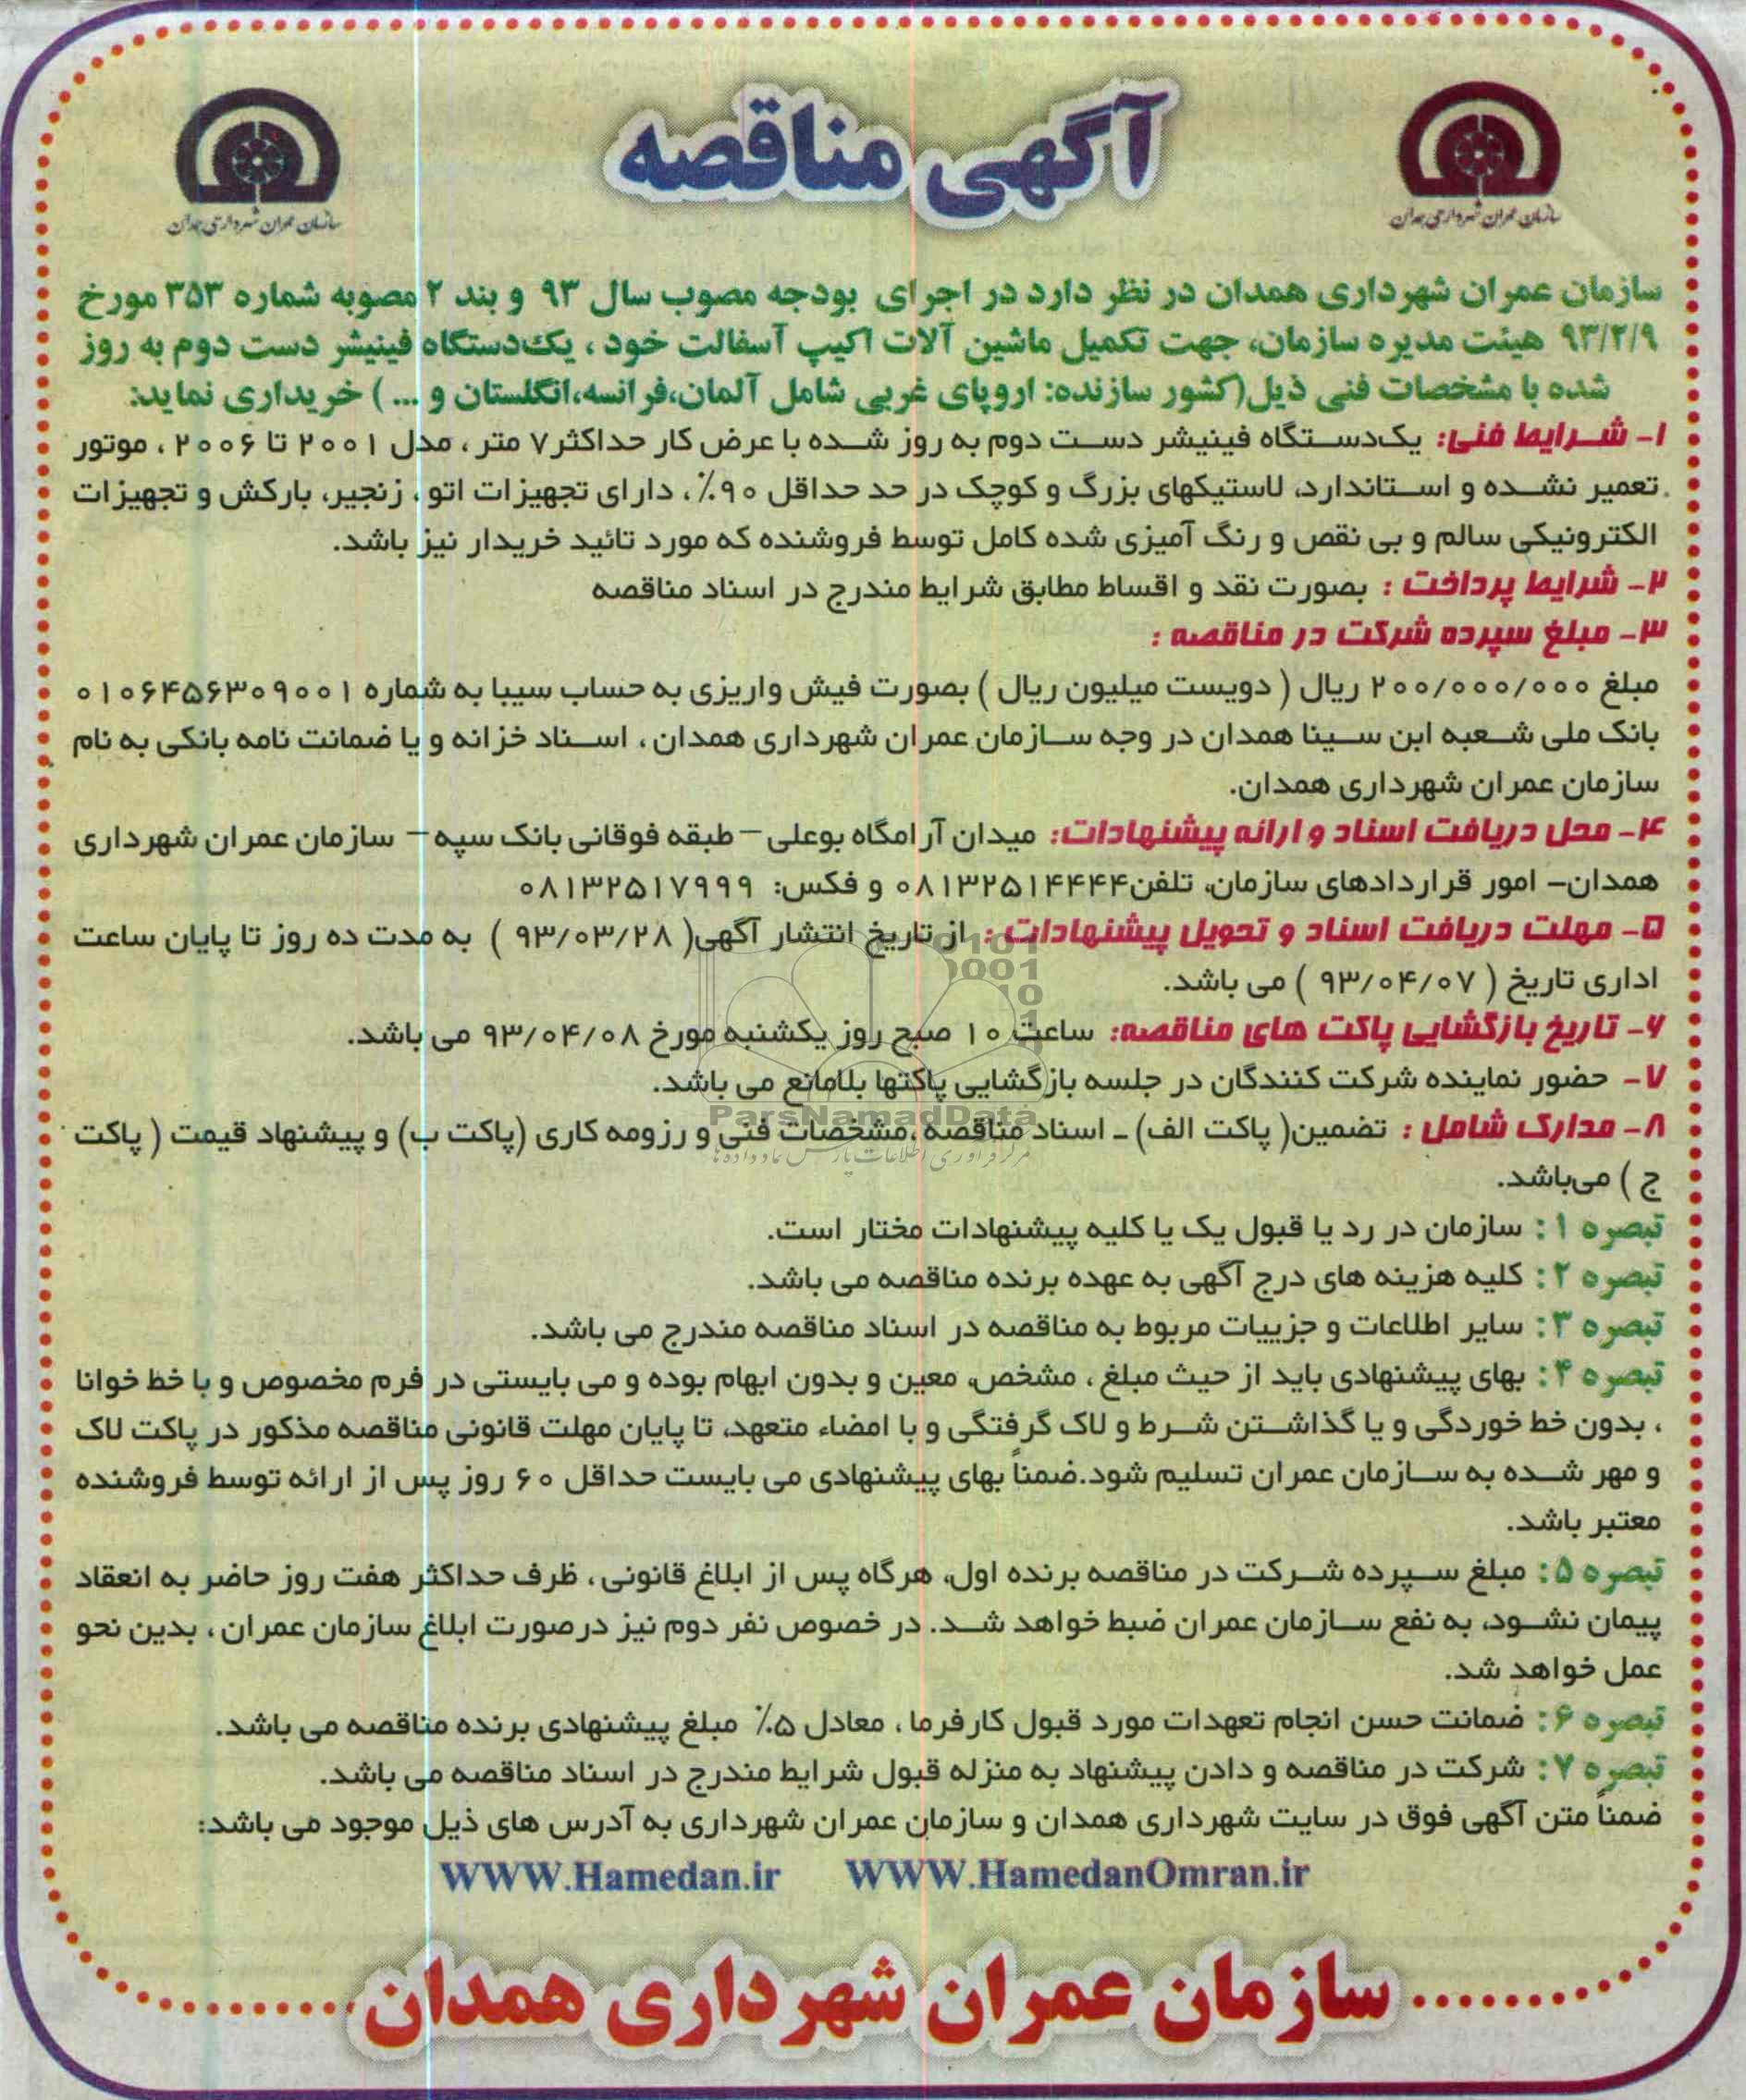 آگهی مناقصه
سازمان عمران شهرداری همدان
سازمان عمران شهرداری همدان
سازمان عمران شهرداری همدان در نظر دارد در اجرای بودجه مصوب سال ۹۳ و بند ۲ مصوبه شماره ۳۵۳ مورخ
۹۳/۲/۹ هیئت مدیره سازمان، جهت تکمیل ماشین آلات اکیپ آسفالت خود ، یک‌دستگاه فینیشر دست دوم به روز
شده با مشخصات فنی ذیل(کشور سازنده: اروپای غربی شامل آلمان،فرانسه،انگلستان و ... ) خریداری نماید:
۱- شرایط فنی: یک‌دستگاه فینیشر دست دوم به روز شده با عرض کار حداکثر۷ متر ، مدل ۲۰۰۱ تا ۲۰۰۶ ، موتور
تعمیر نشده و استاندارد، لاستیکهای بزرگ و کوچک در حد حداقل ۹۰٪ ، دارای تجهیزات اتو ، زنجیر، بارکش و تجهیزات
الکترونیکی سالم و بی نقص و رنگ آمیزی شده کامل توسط فروشنده که مورد تائید خریدار نیز باشد.
۲- شرایط پرداخت : بصورت نقد و اقساط مطابق شرایط مندرج در اسناد مناقصه
۳- مبلغ سپرده شرکت در مناقصه :
مبلغ ۲۰۰/۰۰۰/۰۰۰ ریال ( دویست میلیون ریال ) بصورت فیش واریزی به حساب سیبا به شماره ۰۱۰۶۴۵۶۳۰۹۰۰۱
بانک ملی شعبه ابن سینا همدان در وجه سازمان عمران شهرداری همدان ، اسناد خزانه و یا ضمانت نامه بانکی به نام
سازمان عمران شهرداری همدان.
۴- محل دریافت اسناد و ارائه پیشنهادات: میدان آرامگاه بوعلی – طبقه فوقانی بانک سپه – سازمان عمران شهرداری
همدان- امور قراردادهای سازمان، تلفن۰۸۱۳۲۵۱۴۴۴۴ و فکس: ۰۸۱۳۲۵۱۷۹۹۹
۵- مهلت دریافت اسناد و تحویل پیشنهادات : از تاریخ انتشار آگهی( ۹۳/۰۳/۲۸ ) به مدت ده روز تا پایان ساعت
اداری تاریخ ( ۹۳/۰۴/۰۷ ) می باشد.
۶- تاریخ بازگشایی پاکت های مناقصه: ساعت ۱۰ صبح روز یکشنبه مورخ ۹۳/۰۴/۰۸ می باشد.
۷- حضور نماینده شرکت کنندگان در جلسه بازگشایی پاکتها بلامانع می باشد.
۸- مدارک شامل : تضمین( پاکت الف) ـ اسناد مناقصه ،مشخصات فنی و رزومه کاری (پاکت ب) و پیشنهاد قیمت ( پاکت
ج ) می‌باشد.
تبصره ۱ : سازمان در رد یا قبول یک یا کلیه پیشنهادات مختار است.
تبصره ۲ : کلیه هزینه های درج آگهی به عهده برنده مناقصه می باشد.
تبصره ۳ : سایر اطلاعات و جزییات مربوط به مناقصه در اسناد مناقصه مندرج می باشد.
تبصره ۴ : بهای پیشنهادی باید از حیث مبلغ ، مشخص، معین و بدون ابهام بوده و می بایستی در فرم مخصوص و با خط خوانا
، بدون خط خوردگی و یا گذاشتن شرط و لاک گرفتگی و با امضاء متعهد، تا پایان مهلت قانونی مناقصه مذکور در پاکت لاک
و مهر شده به سازمان عمران تسلیم شود.ضمناً بهای پیشنهادی می بایست حداقل ۶۰ روز پس از ارائه توسط فروشنده
معتبر باشد.
تبصره ۵ : مبلغ سپرده شرکت در مناقصه برنده اول، هرگاه پس از ابلاغ قانونی ، ظرف حداکثر هفت روز حاضر به انعقاد
پیمان نشود، به نفع سازمان عمران ضبط خواهد شد. در خصوص نفر دوم نیز درصورت ابلاغ سازمان عمران ، بدین نحو
عمل خواهد شد.
تبصره ۶ : ضمانت حسن انجام تعهدات مورد قبول کارفرما ، معادل ۵٪ مبلغ پیشنهادی برنده مناقصه می باشد.
تبصره ۷ : شرکت در مناقصه و دادن پیشنهاد به منزله قبول شرایط مندرج در اسناد مناقصه می باشد.
ضمناً متن آگهی فوق در سایت شهرداری همدان و سازمان عمران شهرداری به آدرس های ذیل موجود می باشد:
WWW.Hamedan.ir WWW.HamedanOmran.ir
سازمان عمران شهرداری همدان
ParsNamadData
مرکز فرآوری اطلاعات پارس نماد داده ها